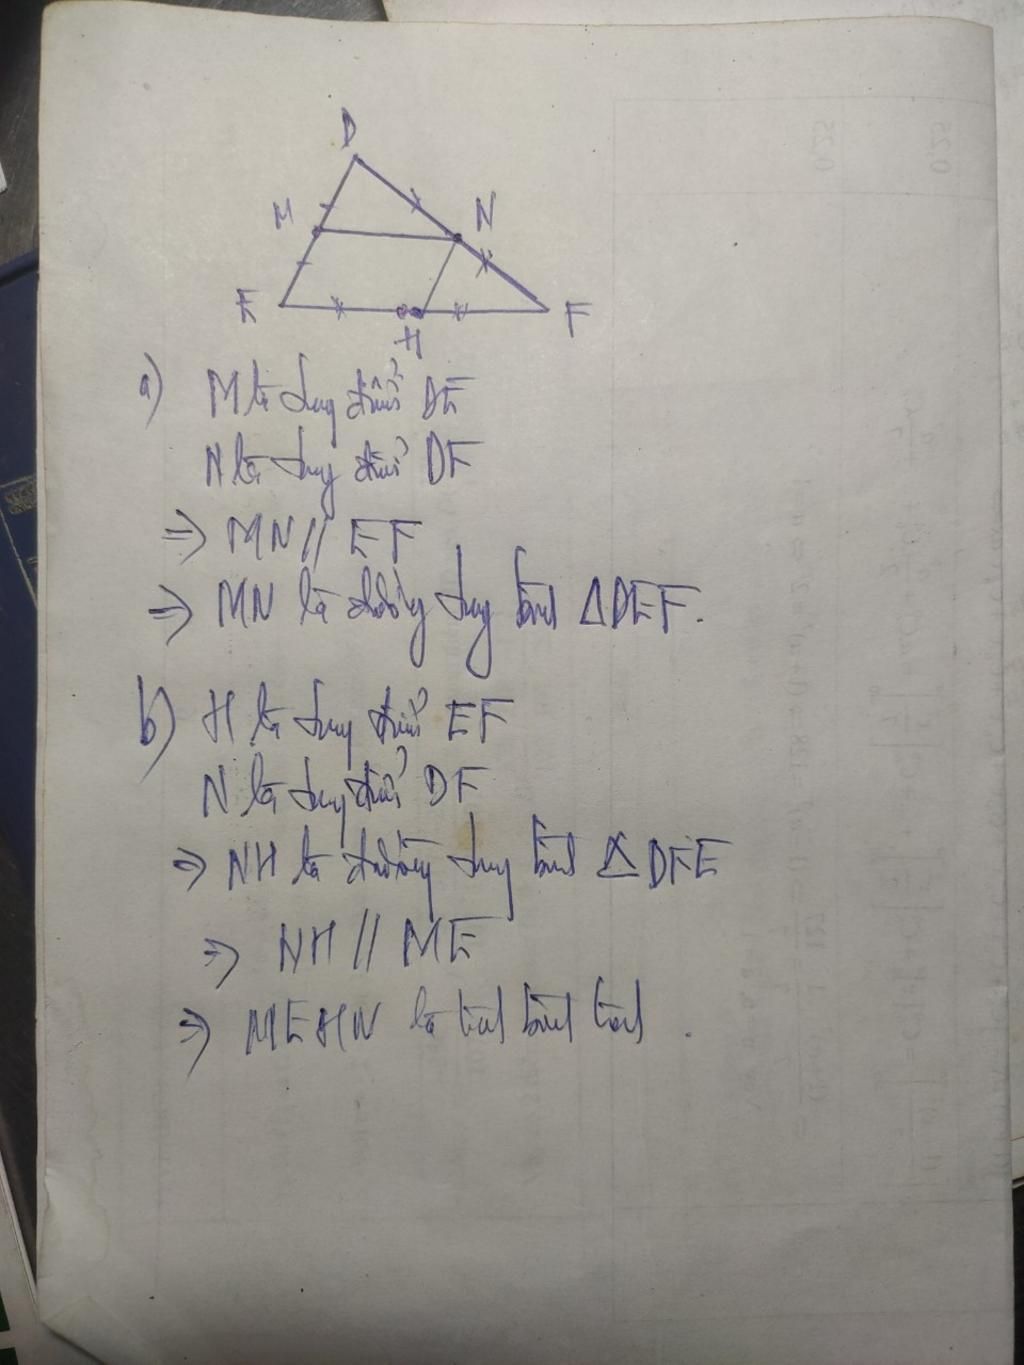 D
M
N
E
H
F
a) M là trung điểm DE
N là trung điểm DF
=> MN // EF
=> MN là đường trung bình ΔDEF.
b) H là trung điểm EF
N là trung điểm DF
=> NH là đường trung bình ΔDFE
=> NH // ME
=> MEHN là hình bình hành.